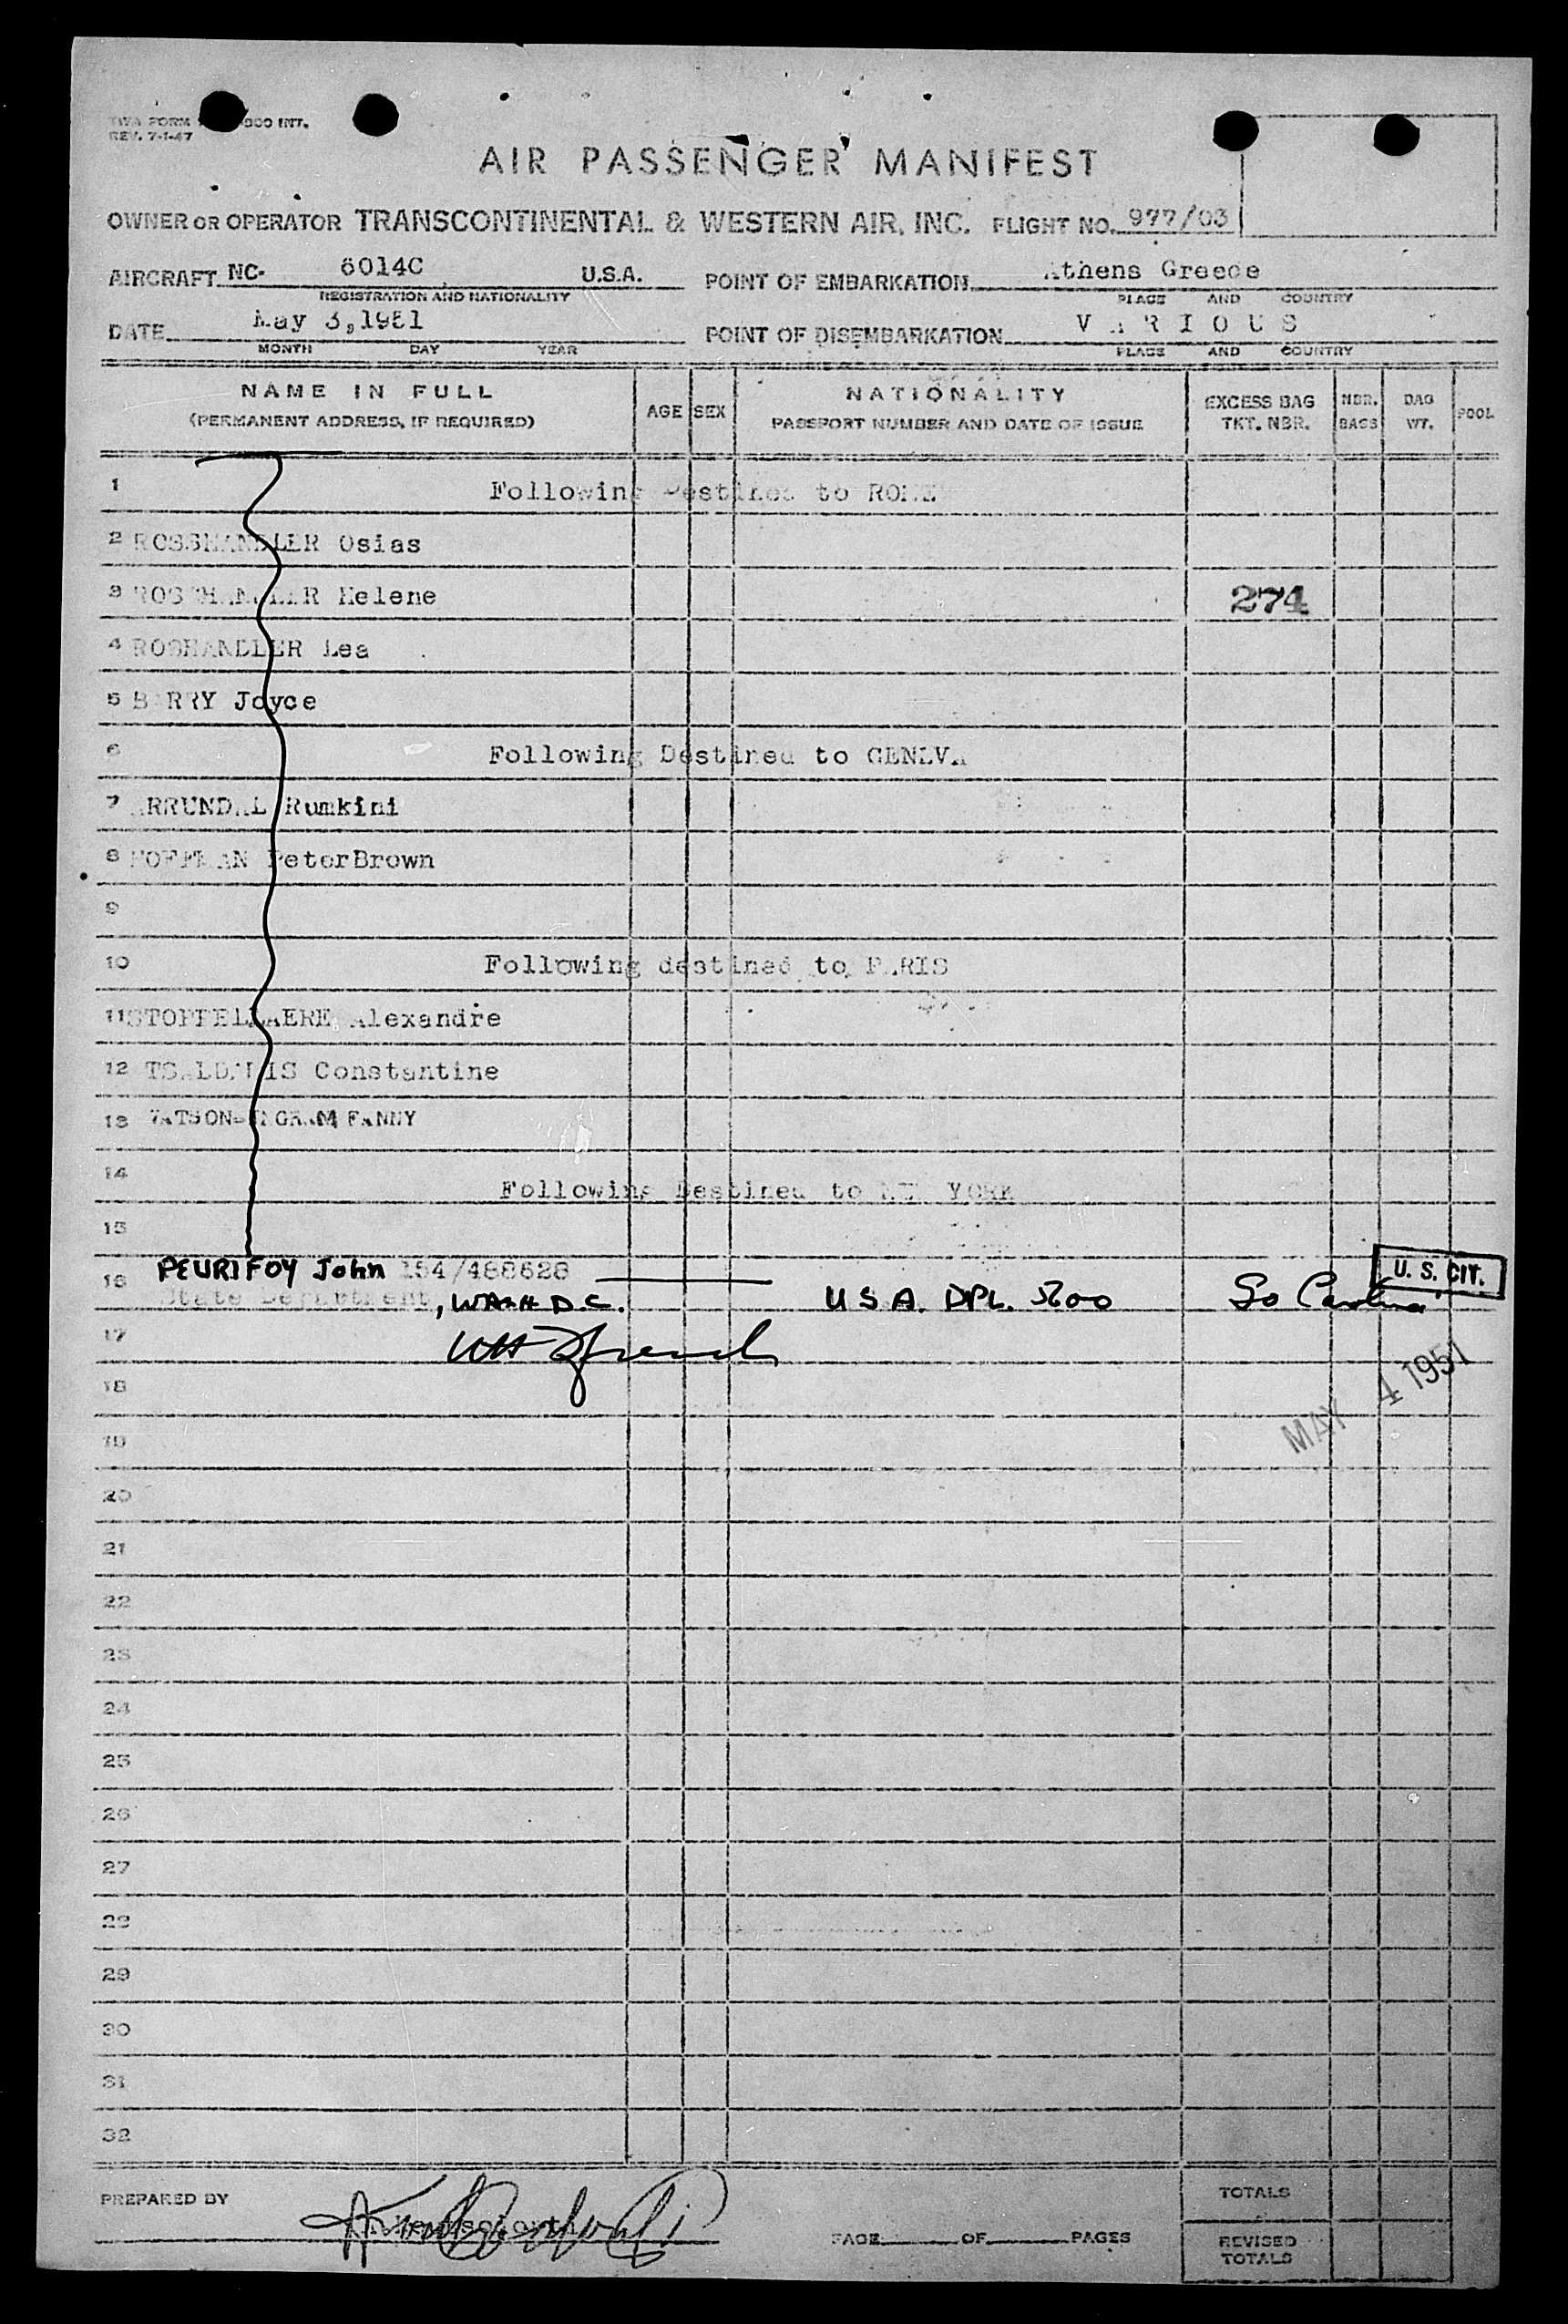 REV. 7-1-47
AIR PASSENGER MANIFEST
OWNER OR OPERATOR TRANSCONTINENTAL & WESTERN AIR, INC. FLIGHT NO. 977/03
AIRCRAFT NC- 6014C U.S.A. POINT OF EMBARKATION Athens Greece
REGISTRATION AND NATIONALITY PLACE AND COUNTRY
DATE May 3,1951 POINT OF DISEMBARKATION V A R I O U S
MONTH DAY YEAR PLACE AND COUNTRY
NAME IN FULL AGE SEX NATIONALITY EXCESS BAG NBR. BAG POOL
(PERMANENT ADDRESS, IF REQUIRED) PASSPORT NUMBER AND DATE OF ISSUE TKT. NBR. BAGS WT.
1 Following Destined to ROME
2 ROSSHANDLER Osias
3 ROSSHANDLER Helene 274
4 ROSHANDLER Lea
5 BARRY Joyce
6 Following Destined to GENEVA
7 ARRUNDAL Rumkini
8 HOFFMAN PeterBrown
9
10 Following destined to PARIS
11 Alexandre
12 TSALDARIS Constantine
13 WATSON-INGRAM FANNY
14 Following Destined to NEW YORK
15
16 PEURIFOY John 154/488628 U. S. CIT.
State Department, WASH D.C. U S A. DPL. 5600 So Carolina
17
18 MAY 4 1951
19
20
21
22
23
24
25
26
27
28
29
30
31
32
PREPARED BY TOTALS
PAGE OF PAGES REVISED
TOTALS